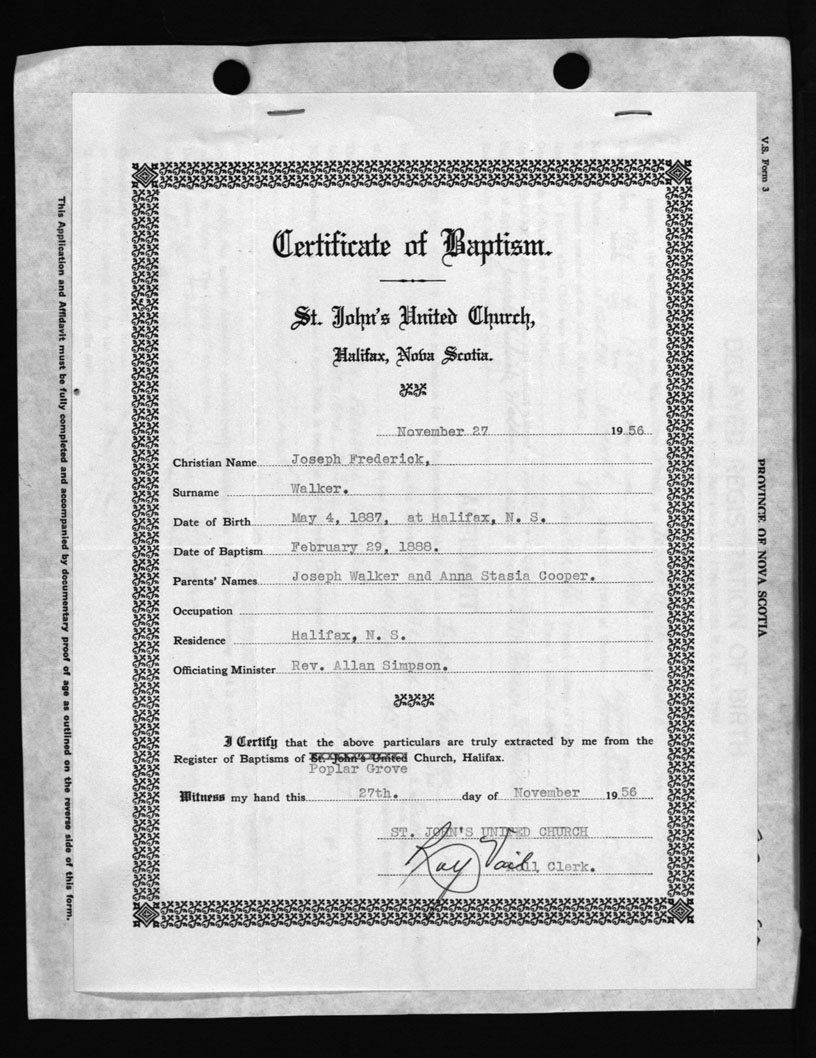 Certificate of Baptism.
St. John's United Church,
Halifax, Nova Scotia.
November 27 1956
Christian Name Joseph Frederick,
Surname Walker.
Date of Birth May 4, 1887, at Halifax, N. S.
Date of Baptism February 29, 1888.
Parents' Names Joseph Walker and Anna Stasia Cooper.
Occupation
Residence Halifax, N. S.
Officiating Minister Rev. Allan Simpson.
I Certify that the above particulars are truly extracted by me from the
Register of Baptisms of St. John's United Church, Halifax.
Poplar Grove
Witness my hand this 27th. day of November 1956
ST. JOHN'S UNITED CHURCH
Ray Vail
Roll Clerk.
This Application and Affidavit must be fully completed and accompanied by documentary proof of age as outlined on the reverse side of this form.
V.S. Form 3
PROVINCE OF NOVA SCOTIA